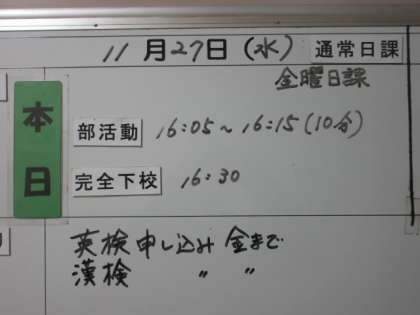 11月27日(水) 通常日課
金曜日課
本日
部活動 16:05~16:15(10分)
完全下校 16:30
英検申し込み 金まで
漢検 〃 〃